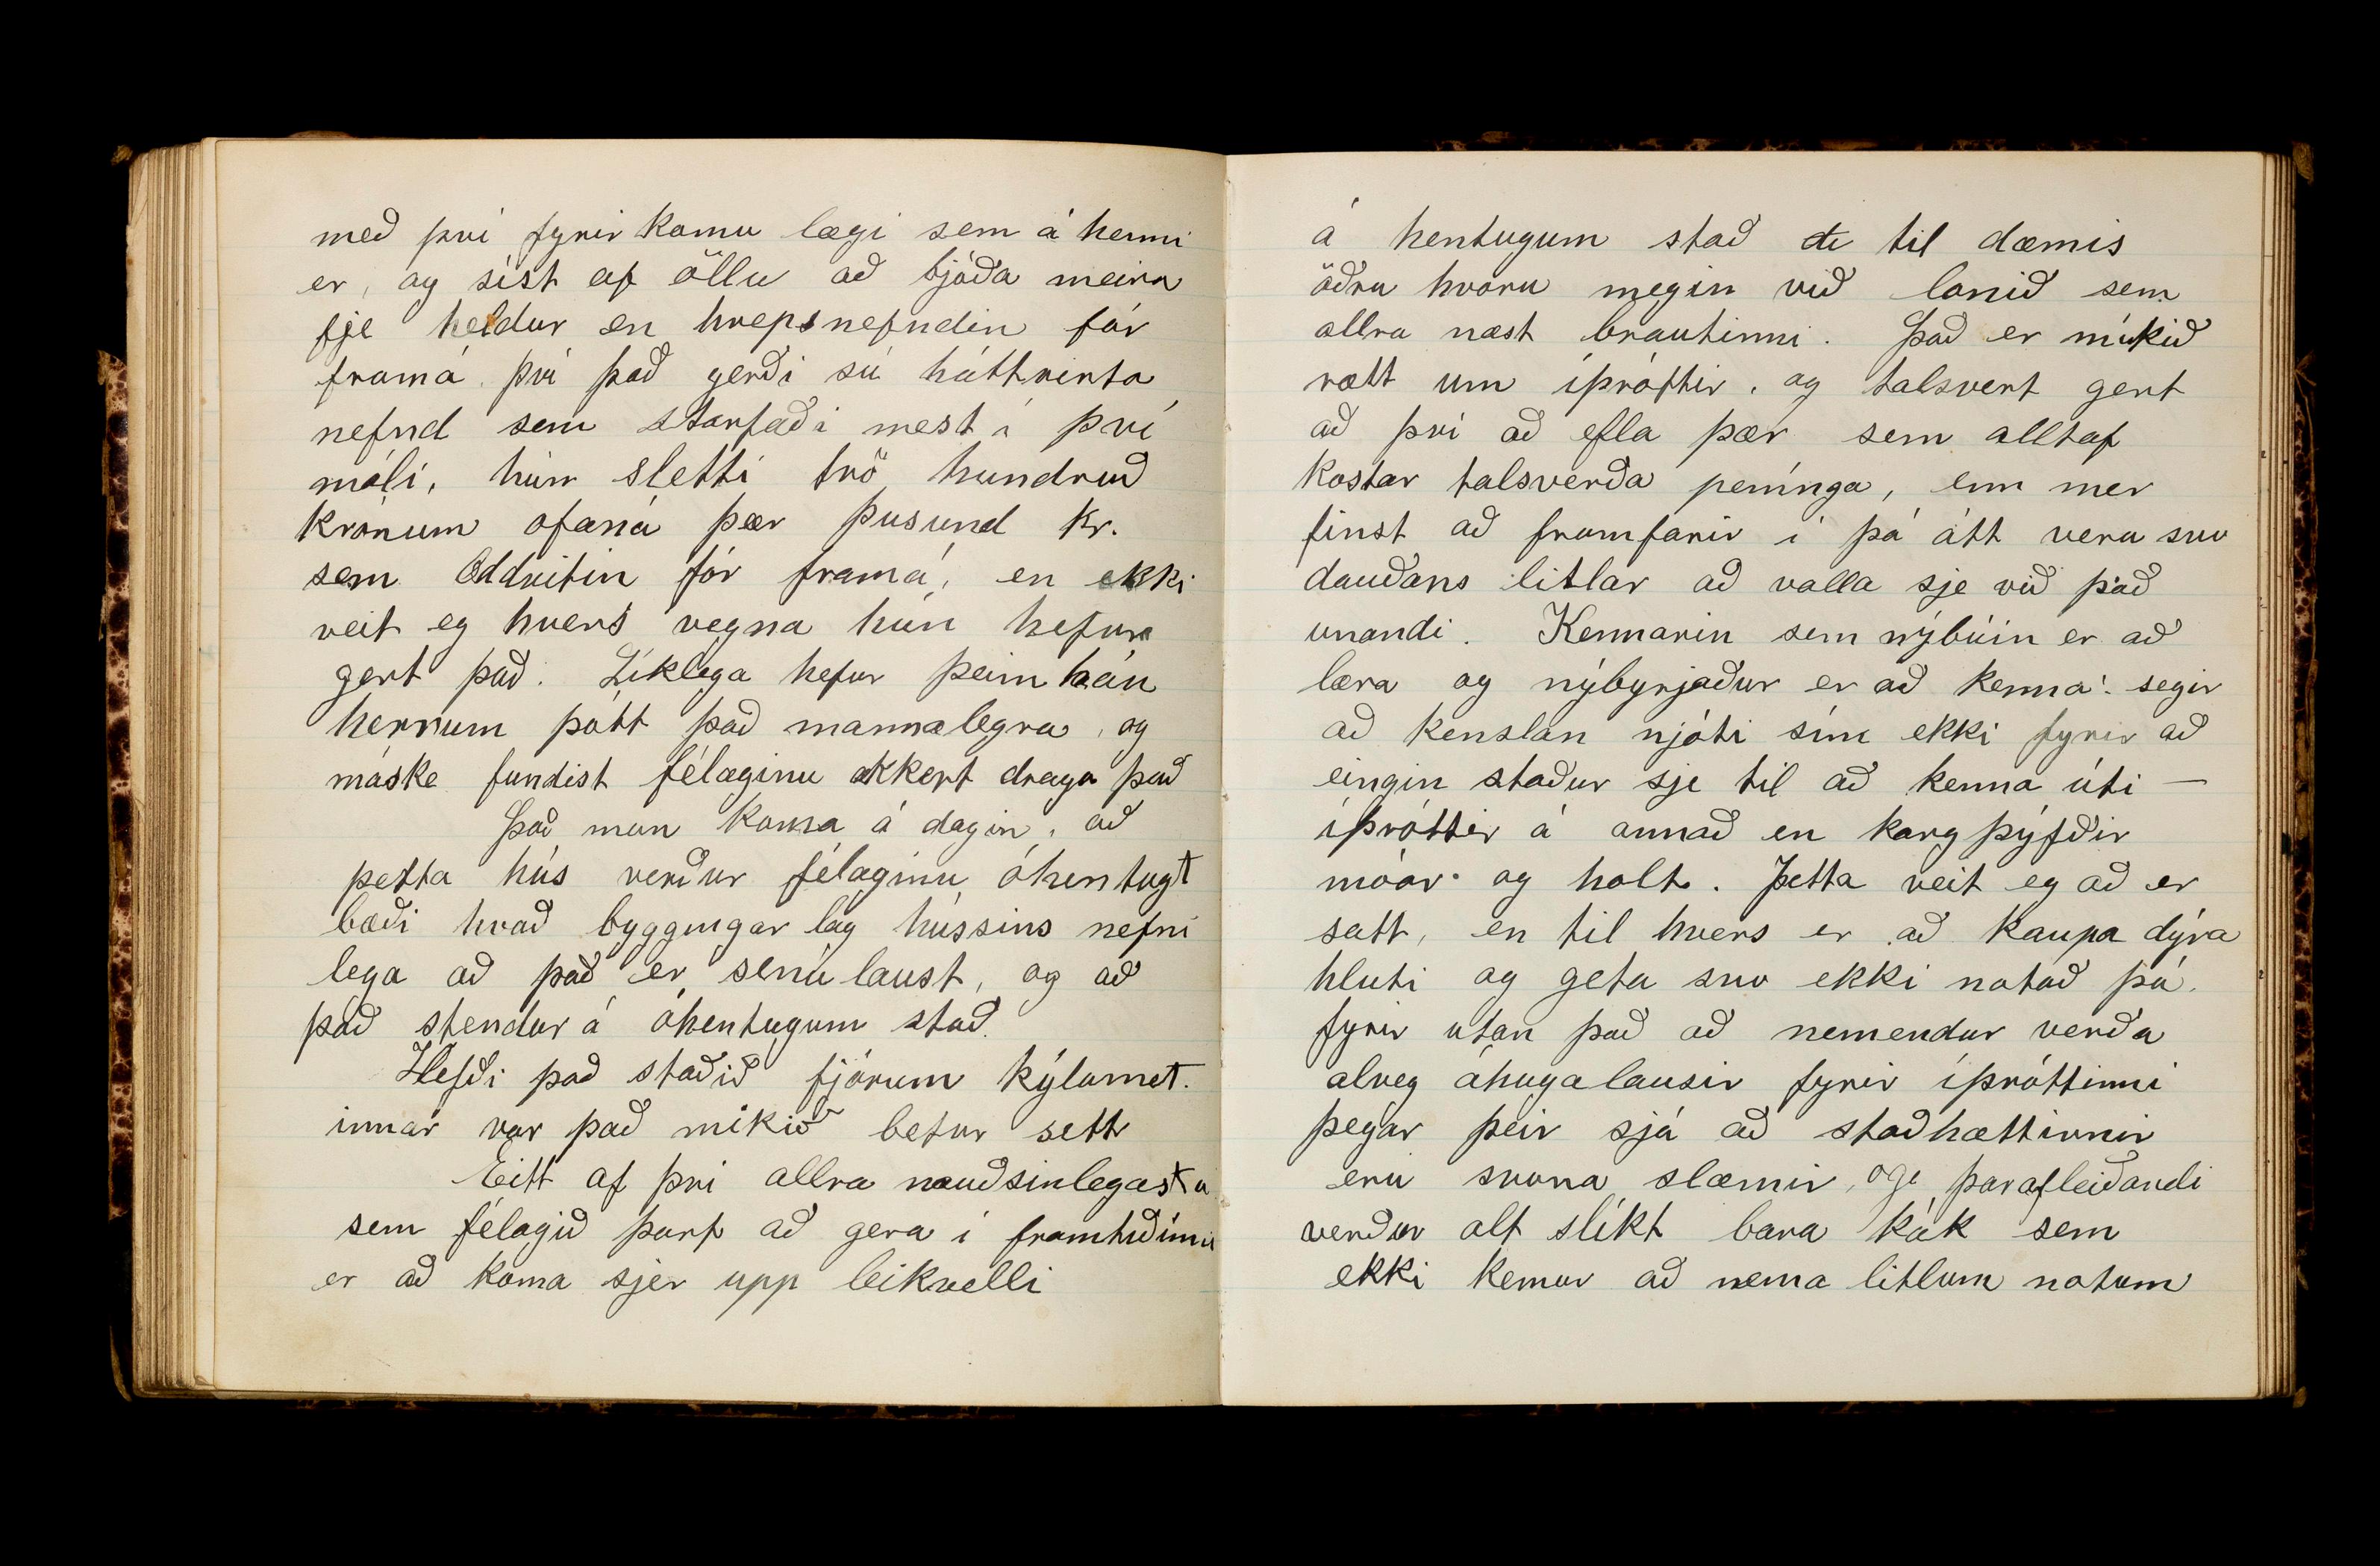 með því fyrir komu lægi sem á henni
er, og síst af öllu að bjóða meira
fje heldur en hrepsnefndin fór
framá því það gerði sú háttvirta
nefnd sem starfaði mest í því
máli, hún sletti tvö hundruð
krónum ofaná þær þusund kr.
sem Oddvitin fór framá, en ekki
veit eg hvers vegna hún hefur
gert það. Líklega hefur þeim háu
herrum þótt það mannalegra, og
máske fundist félaginu ekkert draga það
Það mun koma á dagin, að
þetta hús verður félaginu óhentugt
bæði hvað byggingar lag hússins nefni
lega að það er senu laust, og að
það stendur á óhentugum stað.
Hefði það staðið fjórum kýlomet.
innar var það mikið betur sett
Eitt af því allra nauðsinlegasta
sem félagið þarf að gera í framtíðinni
er að koma sjer upp leikvelli
á hentugum stað til dæmis
öðru hvoru megin við lonið sem
allra næst brautinni. Það er mikið
rætt um íþróttir, og talsvert gert
að því að efla þær sem alltaf
kostar talsverða penínga, enn mer
finst að framfarir í þá átt vera svo
dauðans litlar að valla sje við það
unandi. Kennarin sem nýbúin er að
læra og nýbyrjaður er að kenna: segir
að kenslan njóti sín ekki fyrir að
eingin staður sje til að kenna úti —
íþróttir á annað en karg þýfðir
móar og holt. Þetta veit eg að er
satt, en til hvers er að kaupa dýra
hluti og geta svo ekki notað þá.
fyrir utan það að nemendur verða
alveg áhugalausir fyrir íþróttinni
þegar þeir sjá að staðhættirnir
eru svona slæmir, og þarafleiðandi
verður alt slíkt bara kák sem
ekki kemur að nema litlum notum